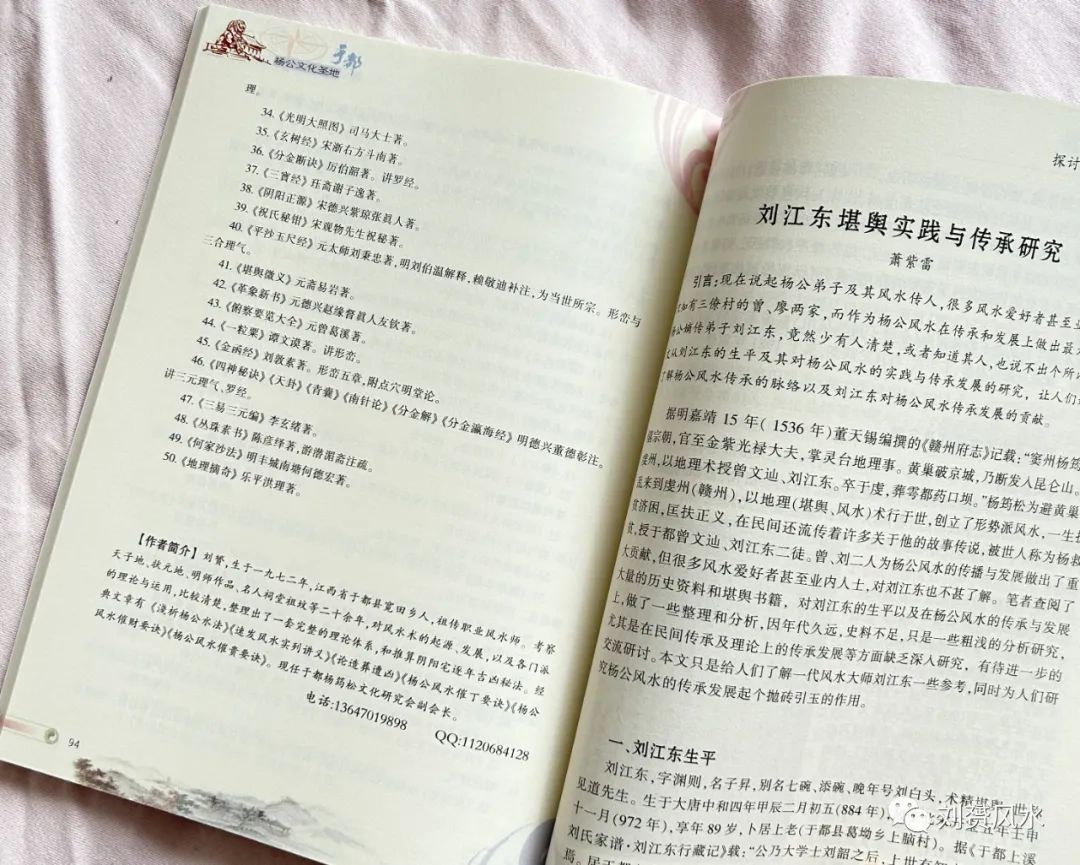 杨公文化圣地
于都
理。
34.《光明大照图》司马大士著。
35.《玄树经》宋浙右方斗南著。
36.《分金断诀》厉伯韶著。讲罗经。
37.《三寶经》珏斋谢子逸著。
38.《阴阳正源》宋德兴紫琼张眞人著。
39.《祝氏秘钳》宋观物先生祝秘著。
40.《平沙玉尺经》元太师刘秉忠著,明刘伯温解释,赖敬迪补注,为当世所宗。形峦与
三合理气。
41.《堪舆微义》元斋易岩著。
42.《革象新书》元德兴赵缘督眞人友钦著。
43.《俯察要览大全》元曾葛溪著。
44.《一粒粟》谭文谟著。讲形峦。
45.《金函经》刘敦素著。形峦五章,附点穴明堂论。
46.《四神秘诀》《天卦》《青囊》《南针论》《分金解》《分金瀛海经》明德兴董德彰注。
讲三元理气、罗经。
47.《三易三元编》李玄绪著。
48.《丛珠素书》陈彦纾著,游潜湄斋注疏。
49.《何家沙法》明丰城南塘何德宏著。
50.《地理摘奇》乐平洪理著。
【作者简介】刘
,生于一九七二年,江西省于都县宽田乡人,祖传职业风水师。考察
天子地、状元地、明师作品、名人祠堂祖坟等二十余年,对风水术的起源、发展,以及各门派
的理论与运用,比较清楚,整理出了一套完整的理论体系,和推算阴阳宅逐年吉凶秘法。经
典文章有《浅析杨公水法》《速发风水实列讲义》《论造葬遗凶》《杨公风水催丁要诀》《杨公
风水催财要诀》《杨公风水催贵要诀》。现任于都杨筠松文化研究会副会长。
电话:13647019898
QQ:1120684128
94
探讨
刘江东堪舆实践与传承研究
萧紫雷
引言:现在说起杨公弟子及其风水传人,很多风水爱好者甚至业
知有三僚村的曾、廖两家,而作为杨公风水在传承和发展上做出最
杨公嫡传弟子刘江东,竟然少有人清楚,或者知道其人,也说不出个所
从刘江东的生平及其对杨公风水的实践与传承发展的研究,让人们
了解杨公风水传承的脉络以及刘江东对杨公风水传承发展的贡献。
据明嘉靖 15 年( 1536 年)董天锡编撰的《赣州府志》记载:“窦州杨筠
僖宗朝,官至金紫光禄大夫,掌灵台地理事。黄巢破京城,乃断发入昆仑山。
虔州,以地理术授曾文辿、刘江东。卒于虔,葬雩都药口坝。”杨筠松为避黄巢
来到虔州(赣州),以地理(堪舆、风水)术行于世,创立了形势派风水,一生
贫济困,匡扶正义,在民间还流传着许多关于他的故事传说,被世人称为杨救
贫,授于都曾文辿、刘江东二徒。曾、刘二人为杨公风水的传播与发展做出了重
大贡献,但很多风水爱好者甚至业内人士,对刘江东也不甚了解。笔者查阅了
大量的历史资料和堪舆书籍，对刘江东的生平以及在杨公风水的传承与发展
上,做了一些整理和分析,因年代久远,史料不足,只是一些粗浅的分析研究,
尤其是在民间传承及理论上的传承发展等方面缺乏深入研究，有待进一步的
交流研讨。本文只是给人们了解一代风水大师刘江东一些参考,同时为人们研
究杨公风水的传承发展起个抛砖引玉的作用。
一、刘江东生平
刘江东,字渊则,名子昇,别名七碗、添碗、晚年号刘白头,术精堪舆
见道先生。生于大唐中和四年甲辰二月初五(884 年)
五年壬申
十一月(972 年),享年 89 岁,卜居上老(于都县葛坳乡上脑村)。据《于都上溪
刘氏家谱·刘江东行藏记》载:“公乃大学士刘韶之后,上世有
刘
风水